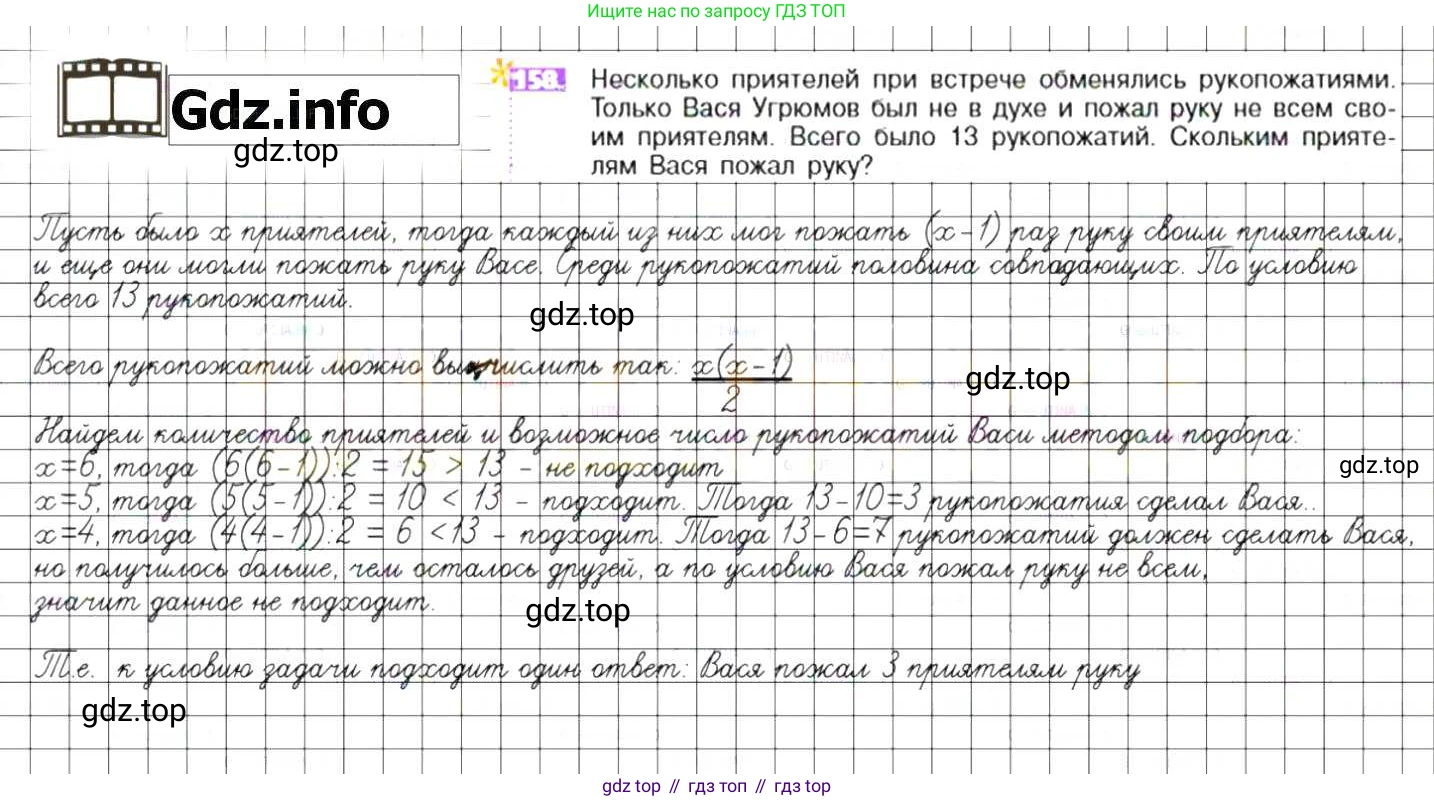 Ищите нас по запросу ГДЗ ТОП
Gdz.info
gdz.top
158.
Несколько приятелей при встрече обменялись рукопожатиями.
Только Вася Угрюмов был не в духе и пожал руку не всем сво-
им приятелям. Всего было 13 рукопожатий. Скольким прияте-
лям Вася пожал руку?
Пусть было x приятелей, тогда каждый из них мог пожать (x-1) раз руку своим приятелям,
и еще они могли пожать руку Васе. Среди рукопожатий половина совпадающих. По условию
всего 13 рукопожатий.
gdz.top
Всего рукопожатий можно вычислить так: x(x-1)
2
gdz.top
Найдем количество приятелей и возможное число рукопожатий Васи методом подбора:
x=6, тогда (6(6-1)):2 = 15 > 13 - не подходит
gdz.top
x=5, тогда (5(5-1)):2 = 10 < 13 - подходит. Тогда 13-10=3 рукопожатия сделал Вася..
x=4, тогда (4(4-1)):2 = 6 <13 - подходит. Тогда 13-6=7 рукопожатий должен сделать Вася,
но получилось больше, чем осталось друзей, а по условию Вася пожал руку не всем,
значит данное не подходит.
gdz.top
Т.е. к условию задачи подходит один ответ: Вася пожал 3 приятелям руку
gdz.top
gdz top // гдз топ // gdz top